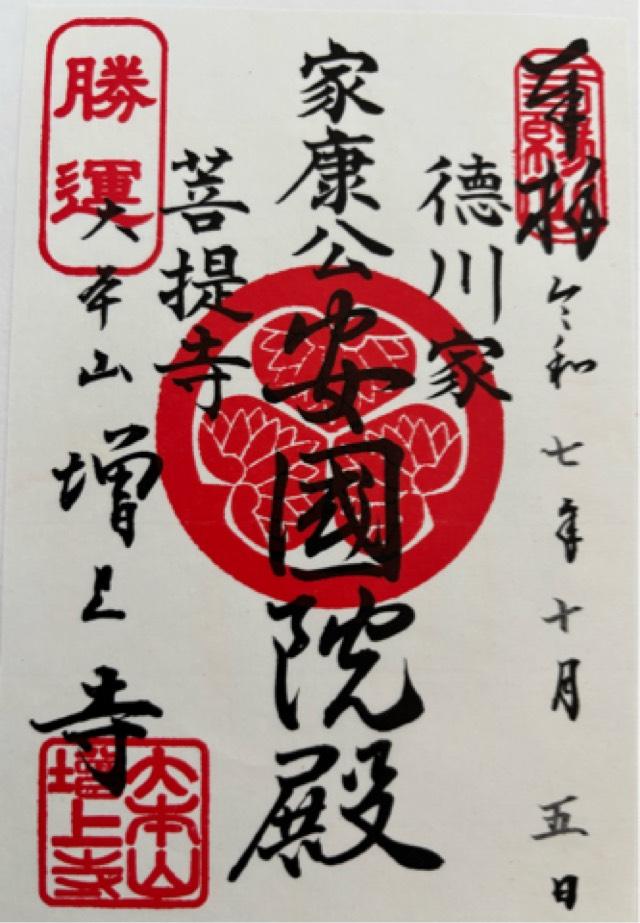 奉拝
令和七年十月五日
德川家
家康公安國院殿
菩提寺
勝運
大本山増上寺
大本山
増上寺